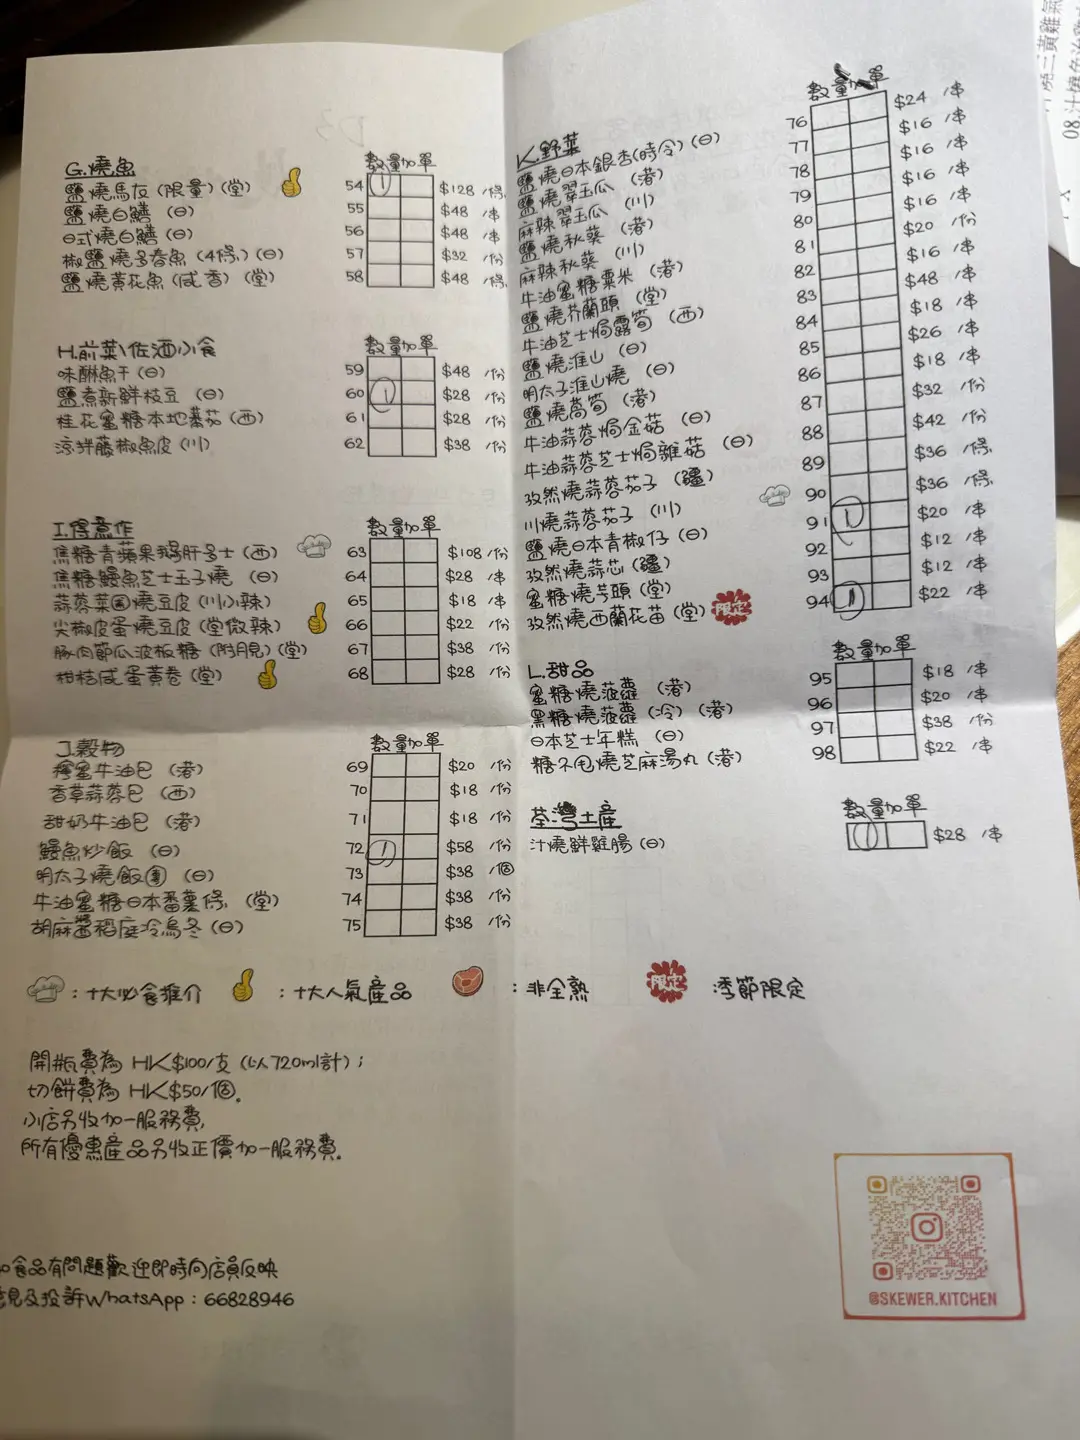 G.燒魚
數量 加單
鹽燒馬友(限量)(堂) 54 1 $128 /條
鹽燒白鱔 (日) 55 $48 /串
日式燒白鱔 (日) 56 $48 /串
椒鹽燒多春魚 (4條)(日) 57 $32 /份
鹽燒黃花魚 (咸香) (堂) 58 $48 /條
H.前菜\佐酒小食
數量 加單
味醂魚干 (日) 59 $48 /份
鹽煮新鮮枝豆 (日) 60 1 $28 /份
桂花蜜糖本地蕃茄 (西) 61 $28 /份
涼拌藤椒魚皮 (川) 62 $38 /份
I.得意作
數量 加單
焦糖青蘋果鵝肝多士 (西) 63 $108 /份
焦糖鰻魚芝士玉子燒 (日) 64 $28 /串
蒜蓉菜圃燒豆皮 (川小辣) 65 $18 /串
尖椒皮蛋燒豆皮 (堂微辣) 66 $22 /份
豚肉節瓜波板糖 (附月見) (堂) 67 $38 /份
柑桔咸蛋黃卷 (堂) 68 $28 /份
J.穀物
數量 加單
檸蜜牛油包 (港) 69 $20 /份
香草蒜蓉包 (西) 70 $18 /份
甜奶牛油包 (港) 71 $18 /份
鰻魚炒飯 (日) 72 1 $58 /份
明太子燒飯團 (日) 73 $38 /個
牛油蜜糖日本番薯條 (堂) 74 $38 /份
胡麻醬稻庭冷烏冬 (日) 75 $38 /份
數量 加單
K.野菜
鹽燒日本銀杏(時令) (日) 76 $24 /串
鹽燒翠玉瓜 (港) 77 $16 /串
麻辣翠玉瓜 (川) 78 $16 /串
鹽燒秋葵 (港) 79 $16 /串
麻辣秋葵 (川) 80 $16 /串
牛油蜜糖粟米 (港) 81 $20 /份
鹽燒芥蘭頭 (堂) 82 $16 /串
牛油芝士焗露筍 (西) 83 $48 /串
鹽燒淮山 (日) 84 $18 /串
明太子淮山燒 (日) 85 $26 /串
鹽燒萵筍 (港) 86 $18 /串
牛油蒜蓉焗金菇 (日) 87 $32 /份
牛油蒜蓉芝士焗雜菇 (日) 88 $42 /份
孜然燒蒜蓉茄子 (疆) 89 $36 /條
川燒蒜蓉茄子 (川) 90 $36 /條
鹽燒日本青椒仔 (日) 91 1 $20 /串
孜然燒蒜芯 (疆) 92 $12 /串
蜜糖燒芋頭 (堂) 93 $12 /串
孜然燒西蘭花苗 (堂) 限定 94 1 $22 /串
數量 加單
L.甜品
蜜糖燒菠蘿 (港) 95 $18 /串
黑糖燒菠蘿 (冷) (港) 96 $20 /串
日本芝士年糕 (日) 97 $38 /份
糖不甩燒芝麻湯丸 (港) 98 $22 /串
荃灣土產
數量 加單
汁燒鮮雞腸 (日) 1 $28 /串
:十大必食推介 :十大人氣產品 :非全熟 限定 季節限定
開瓶費為 HK$100/支 (以720ml計);
切餅費為 HK$50/個。
小店另收加一服務費,
所有優惠產品另收正價加一服務費。
如食品有問題歡迎即時向店員反映
意見及投訴WhatsApp:66828946
@SKEWER.KITCHEN